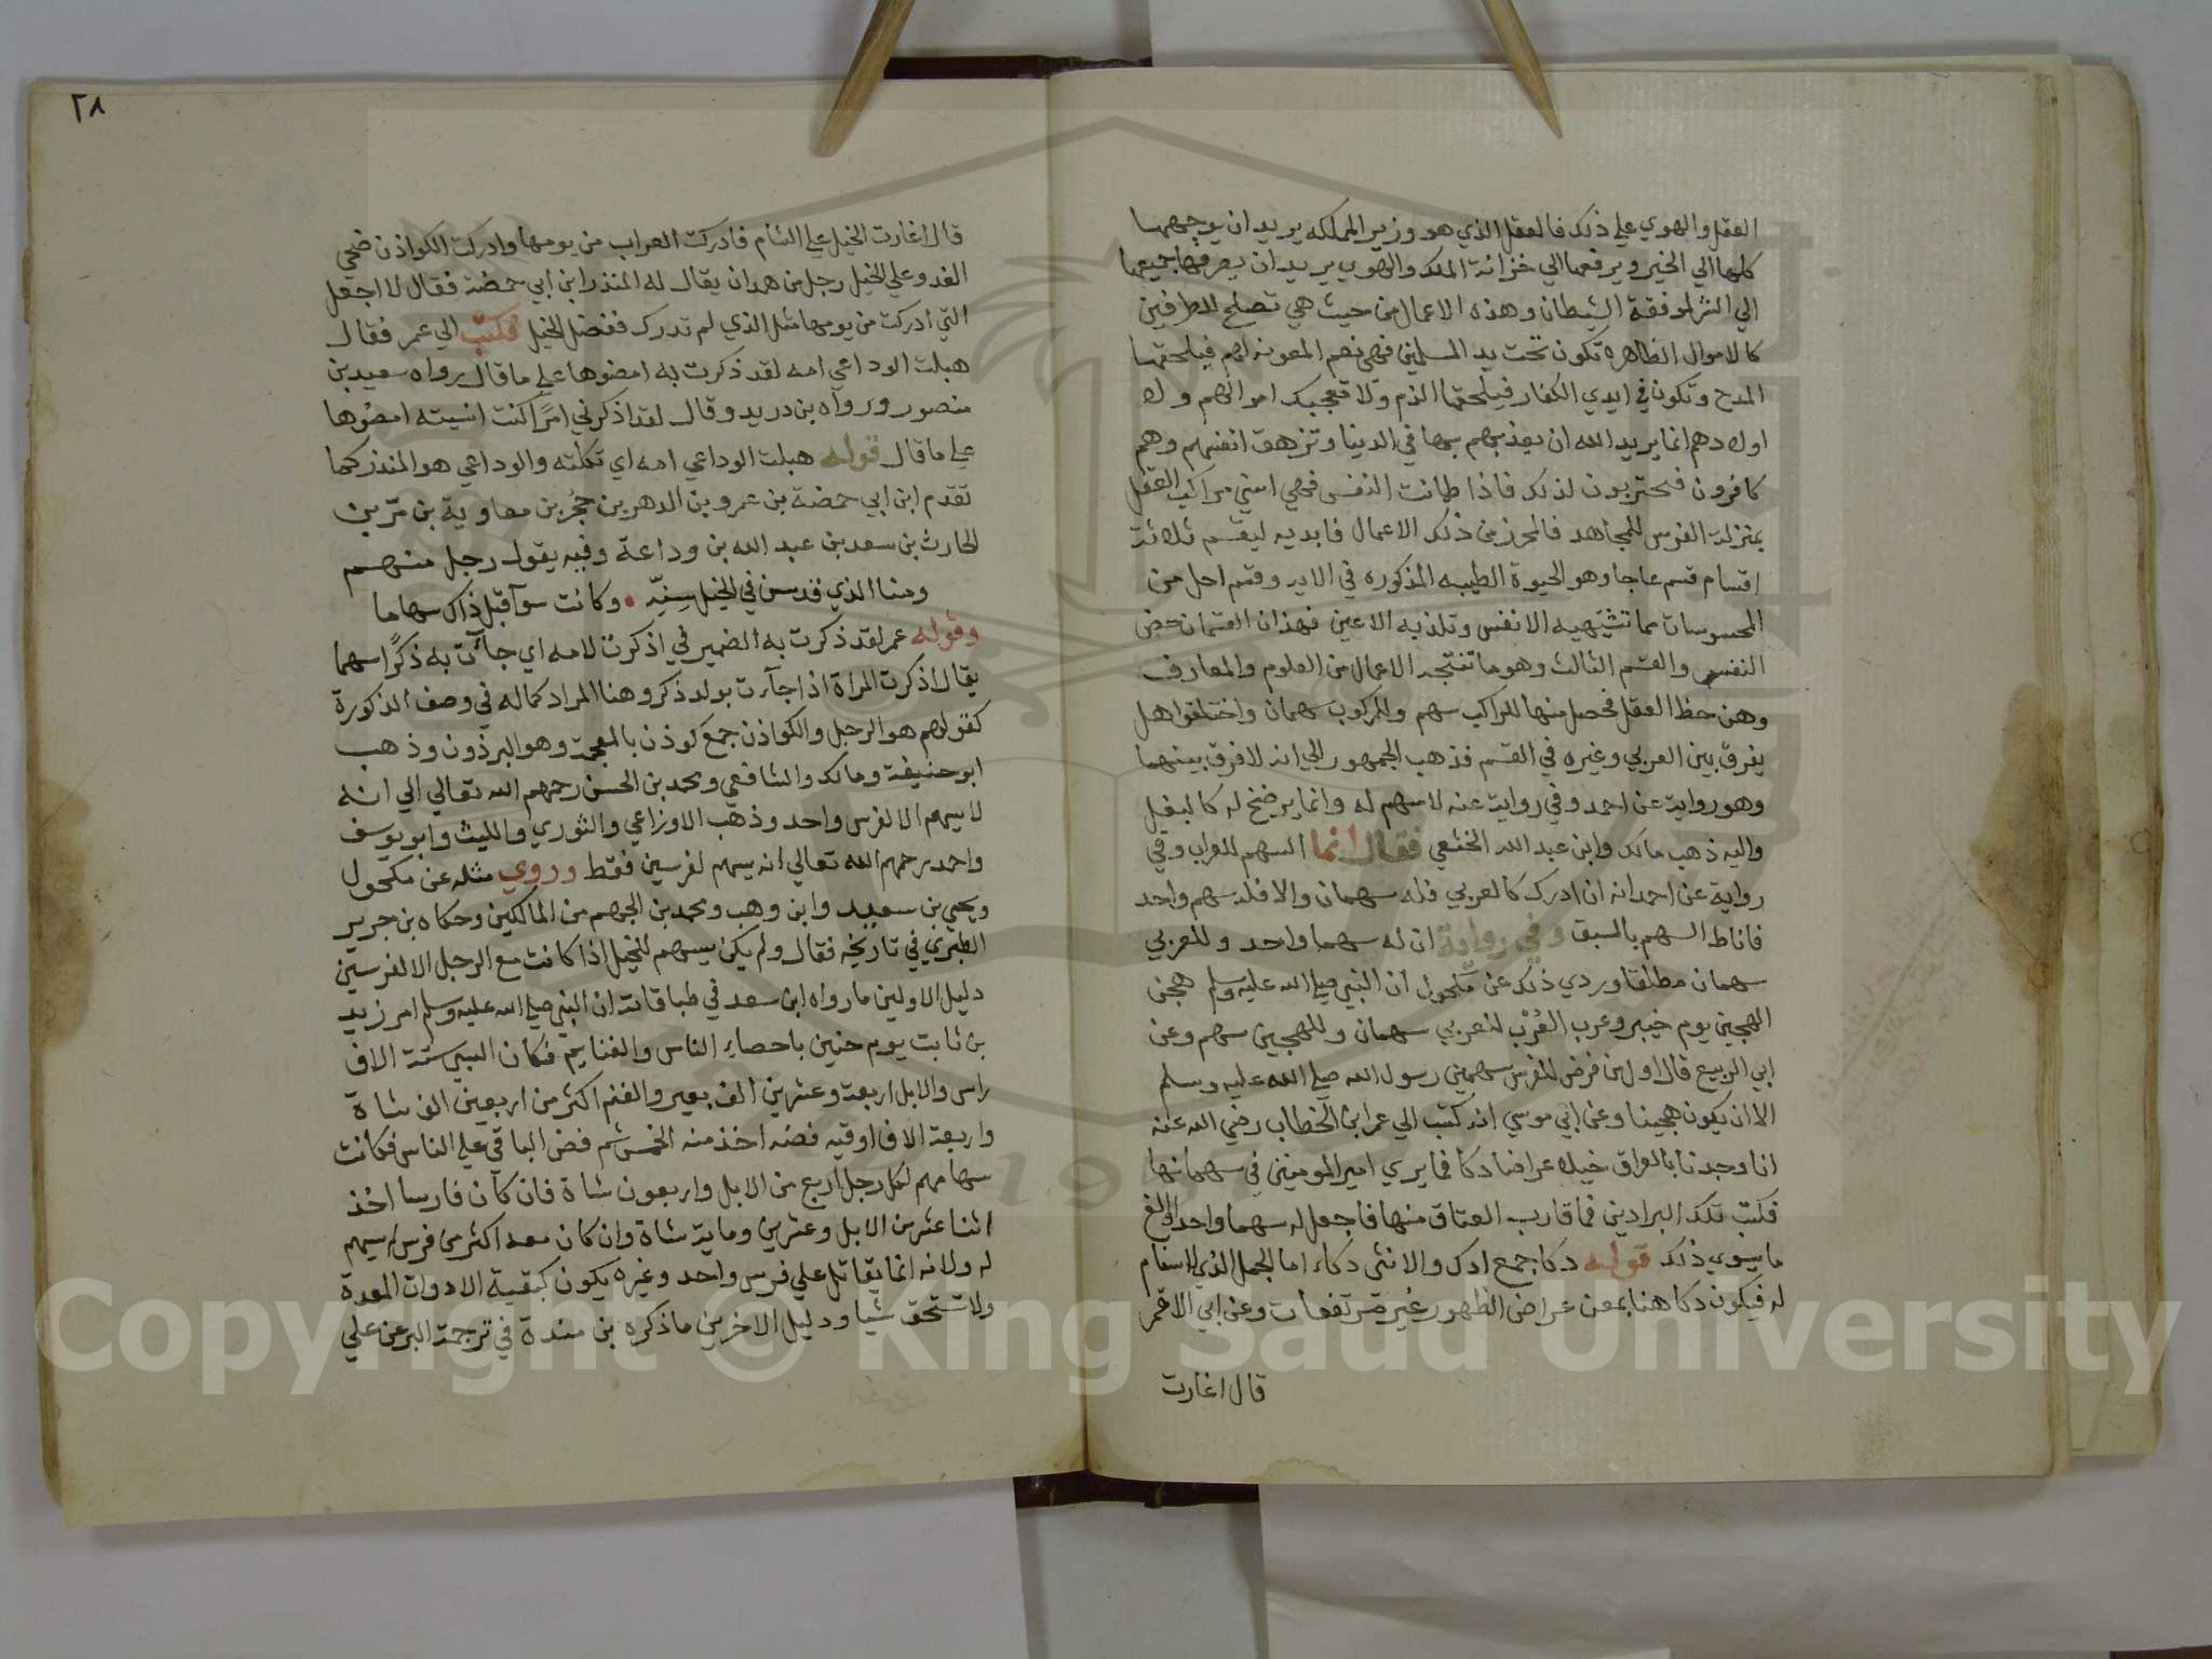 العقل والهوي علي ذلك فالعقل الذي هو وزير المملكه يريد ان يوجهها
كلها الي الخير ويرفعها الي خزانة الملك والهوي يريد ان يصرفها جميعها
الي الشر لموفقة الشيطان وهذه الاعمال من حيث هي تصلح للطرفين
كالاموال الظاهره تكون تحت يد المسلمين فهي نعم المعونه لهم فيلحقها
المدح وتكون في ايدي الكفار فيلحقها الذم ولا تعجبك اموالهم ولا
اولادهم انما يريد الله ان يعذبهم بها في الدنيا وتزهق انفسهم وهم
كافرون فيحتربون لذلك فاذا طمانت النفس فهي اسني مراكب العقل
بمنزلة الفرس للمجاهد فالمحرز من ذلك الاعمال فابديه ليقسم ثلاثة
اقسام قسم عاجل وهو الحيوة الطيبه المذكوره في الايه وقسم اجل من
المحسوسات مما تشتهيه الانفس وتلذ به الاعين فهذان القسمان حض
النفس والقسم الثالث وهو ما تنتجه الاعمال من العلوم والمعارف
وهن حظ العقل فحصل منها للراكب سهم وللمركوب سهمان واختلفوا هل
يفرق بين العربي وغيره في القسم فذهب الجمهور الي انه لا فرق بينهما
وهو رواية عن احمد وفي رواية عنه لا سهم له وانما يرضخ له كالبغل
واليه ذهب مالك وابن عبد الله الخثعي فقال انما السهم للعراب وفي
رواية عن احمد انه ان ادرك كالعربي فله سهمان والا فله سهم واحد
فاناط السهم بالسبق وفي رواية ان له سهما واحد وللعربي
سهمان مطلقا وردي ذلك عن مكحول ان النبي صلي الله عليه وسلم هجن
الهجين يوم خيبر وعرب العُرْب للعربي سهمان وللهجين سهم وعن
ابي الربيع قال اول من فرض للفرس سهمين رسول الله صلي الله عليه وسلم
الا ان يكون هجينا وعن ابي موسي انه كتب الي عمر ابن الخطاب رضي الله عنه
انا وجدنا بالعراق خيلا عراضا دكا فما يري امير المومنين في سهمانها
فكتب تلك البرادين فما قارب العتاق منها فاجعل له سهما واحدا والغ
ما سوي ذلك قوله دكا جمع ادك والانثي دكاء اما الجمل الذي لا سنام
له فيكون دكا هنا بمعن عراض الظهور غير مرتفعات وعن ابي الاقمر
قال اغارت
٢٨
قال اغارت الخيل علي الشام فادركت العراب من يومها وادركت الكواذن ضحي
الغد وعلي الخيل رجل من همدان يقال له المنذر ابن ابي حمضة فقال لا اجعل
التي ادركت من يومها مثل الذي لم تدرك ففضل الخيل فكتب الي عمر فقال
هبلت الوداعي امه لقد ذكرت به امضوها علي ما قال رواه سعيد بن
منصور ورواه بن دريد وقال لقد اذكرني امرًا كنت انسيته امضوها
علي ما قال قوله هبلت الوداعي امه اي ثكلته والوداعي هو المنذر كما
تقدم ابن ابي حمضة بن عمرو بن الدهر بن حُجْر بن معاوية بن مرّ بن
الحارث بن سعد بن عبد الله بن وداعة وفيه يقول رجل منهم
ومنا الذي قد سن في الخيل سِنّه • وكانت سوآ قبل ذاك سهاما
وقوله عمر لقد ذكرت به الضمير في اذكرت لامه اي جآت به ذكرًا سهما
يقال اذكرت المراة اذا جآءت بولد ذكر وهنا المراد كماله في وصف الذكورة
كقولهم هو الرجل والكواذن جمع كوذن بالمعجمة وهو البرذون وذهب
ابو حنيفة ومالك والشافعي ومحمد بن الحسن رحمهم الله تعالي الي انه
لا يسهم الا لفرس واحد وذهب الاوزاعي والثوري والليث وابو يوسف
واحمد رحمهم الله تعالي انه يسهم لفرسين فقط وروي مثله عن مكحول
ويحيي بن سعيد وابن وهب ومحمد بن الجهم من المالكين وحكاه بن جرير
الطبري في تاريخه فقال ولم يكن يسهم للخيل اذا كانت مع الرجل الا لفرسين
دليل الاولين ما رواه ابن سعد في طباقاته ان النبي صلي الله عليه وسلم امر زيد
بن ثابت يوم حنين باحصاء الناس والغنايم فكان السبي ستة الاف
راس والابل اربعة وعشرين الف بعير والغنم اكثر من اربعين الف شاة
واربعة الاف اوقيه فضه اخذ منه الخمس ثم فض الباقي علي الناس فكانت
سهامهم لكل رجل اربع من الابل واربعون شاة فان كان فارسا اخذ
اثنا عشر من الابل وعشرين وماية شاة وان كان معه اكثر من فرس لم يسهم
له ولانه انما يقاتل علي فرس واحد وغيره يكون كبقية الادوات المعدة
ولا تستحق شيا ودليل الاخرين ما ذكره بن مندة في ترجمة البر عن علي
Copyright © King Saud University